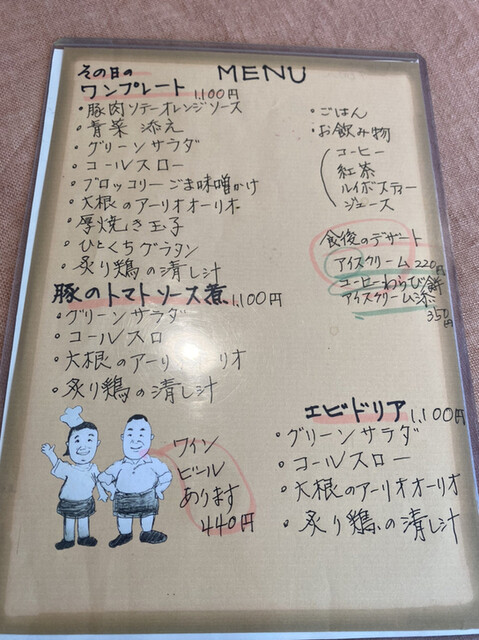 MENU
その日の
ワンプレート 1,100円
・豚肉ソテーオレンジソース
・青菜添え
・グリーンサラダ
・コールスロー
・ブロッコリーごま味噌かけ
・大根のアーリオオーリオ
・厚焼き玉子
・ひとくちグラタン
・炙り鶏の清し汁
・ごはん
・お飲み物
コーヒー
紅茶
ルイボスティー
ジュース
食後のデザート
アイスクリーム 220円
コーヒーわらび餅
アイスクリーム添
350円
豚のトマトソース煮 1,100円
・グリーンサラダ
・コールスロ
・大根のアーリオオーリオ
・炙り鶏の清し汁
ワイン
ビール
あります
440円
エビドリア 1,100円
・グリーンサラダ
・コールスロー
・大根のアーリオオーリオ
・炙り鶏の清し汁